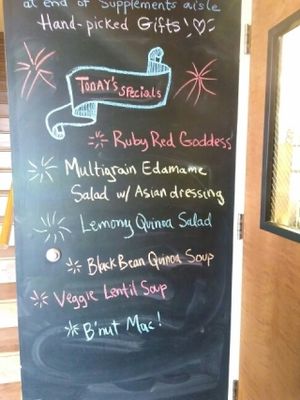 at end of Supplements aisle
Hand-picked Gifts!
TODAY's specials
Ruby Red Goddess
Multigrain Edamame
Salad w/ Asian dressing
Lemony Quinoa Salad
Black Bean Quinoa Soup
Veggie Lentil Soup
B'nut Mac!